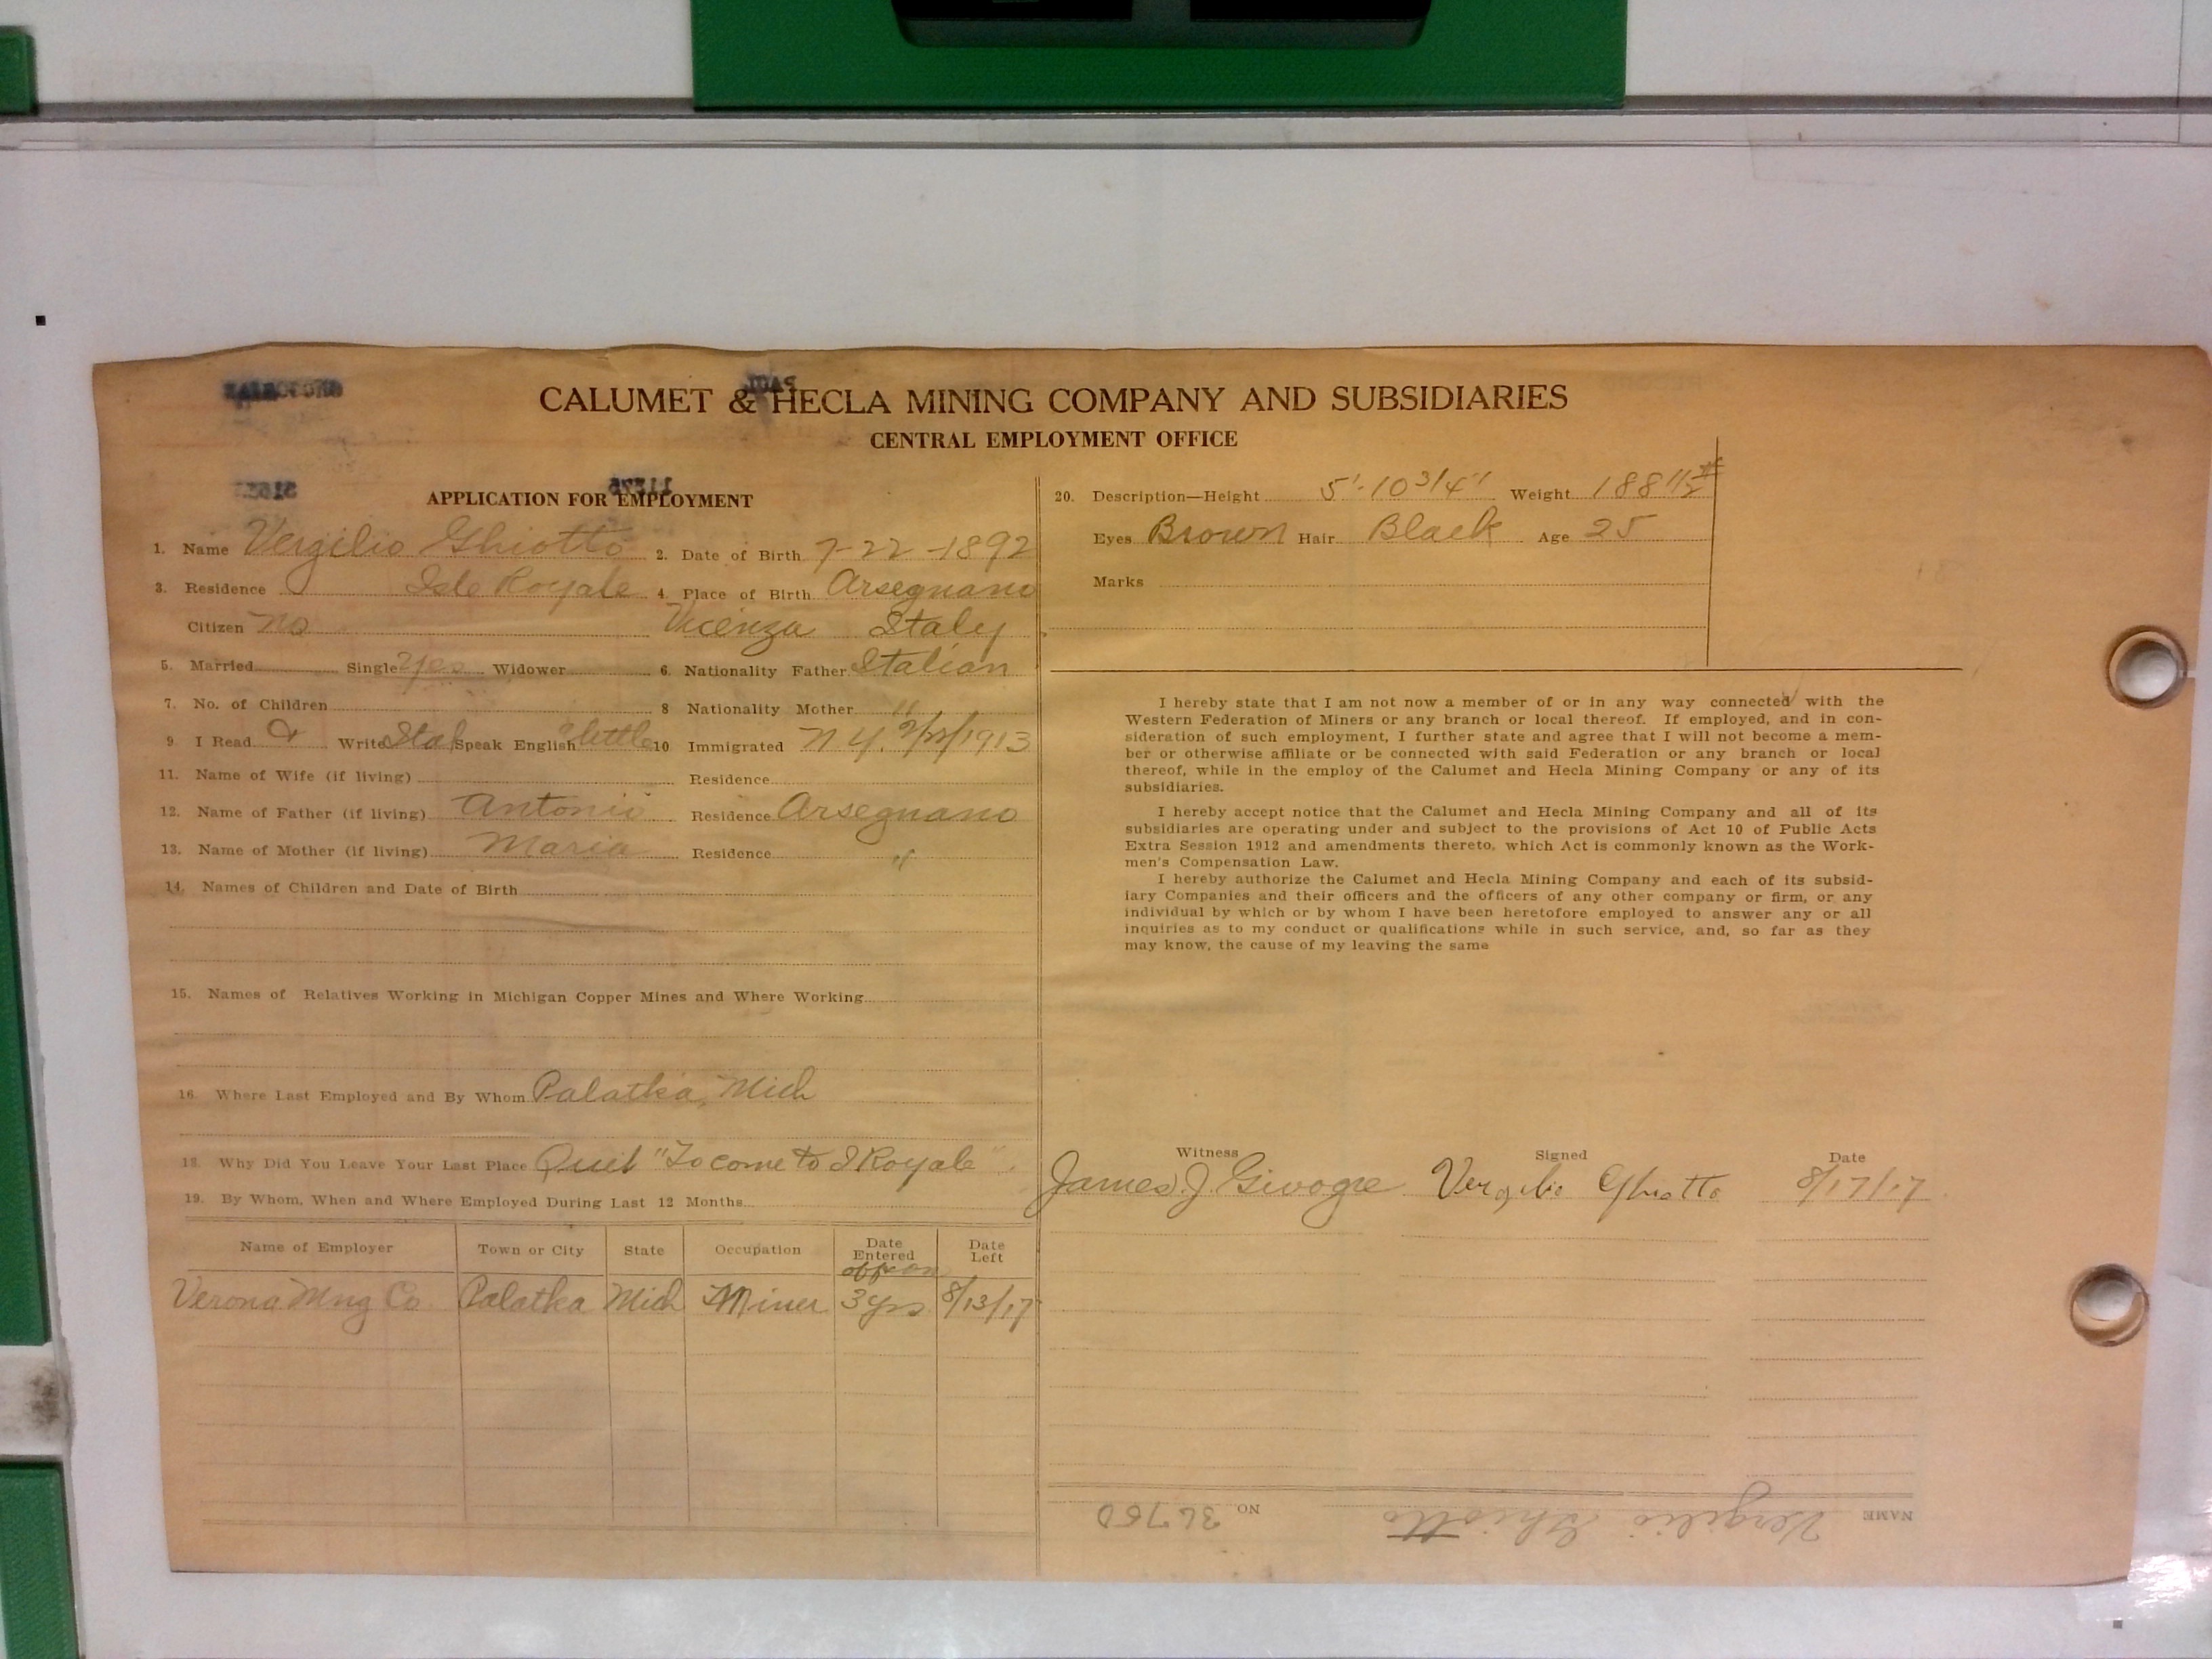 CALUMET & HECLA MINING COMPANY AND SUBSIDIARIES
CENTRAL EMPLOYMENT OFFICE
APPLICATION FOR EMPLOYMENT
1. Name Vergilio Ghiotto 2. Date of Birth 7-22-1892
3. Residence Isle Royale 4. Place of Birth Arsegnano
Citizen No Vicenza Italy
5. Married Single Yes Widower 6. Nationality Father Italian
7. No. of Children 8 Nationality Mother "
9 I Read & Write Ital Speak English "little 10 Immigrated N.Y. 1913
11. Name of Wife (if living) Residence
12. Name of Father (if living) Antonio Residence Arsegnano
13. Name of Mother (if living) Maria Residence "
14. Names of Children and Date of Birth
15. Names of Relatives Working in Michigan Copper Mines and Where Working
16. Where Last Employed and By Whom Palatka, Mich
18. Why Did You Leave Your Last Place Quit "To come to I Royale"
19. By Whom, When and Where Employed During Last 12 Months
Name of Employer Town or City State Occupation Date Entered Date Left
off & on
Verona Mng Co. Palatka Mich Miner 3 yrs 8/13/17
20. Description—Height 5'-10 3/4" Weight 188 1/2 #
Eyes Brown Hair Black Age 25
Marks
I hereby state that I am not now a member of or in any way connected with the
Western Federation of Miners or any branch or local thereof. If employed, and in con-
sideration of such employment, I further state and agree that I will not become a mem-
ber or otherwise affiliate or be connected with said Federation or any branch or local
thereof, while in the employ of the Calumet and Hecla Mining Company or any of its
subsidiaries.
I hereby accept notice that the Calumet and Hecla Mining Company and all of its
subsidiaries are operating under and subject to the provisions of Act 10 of Public Acts
Extra Session 1912 and amendments thereto, which Act is commonly known as the Work-
men's Compensation Law.
I hereby authorize the Calumet and Hecla Mining Company and each of its subsid-
iary Companies and their officers and the officers of any other company or firm, or any
individual by which or by whom I have been heretofore employed to answer any or all
inquiries as to my conduct or qualifications while in such service, and, so far as they
may know, the cause of my leaving the same
Witness Signed Date
James J. Vergilio Ghiotto 8/17/17
NAME Vergilio Ghiotto NO 36750